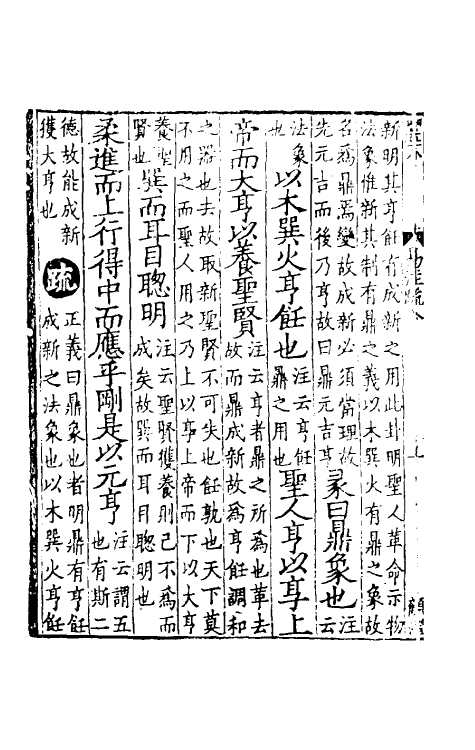 新明其亨飪有成新之用此卦明聖人革命示物
法象惟新其制有鼎之義以木巽火有鼎之象故
名爲鼎焉變故成新必須當理故
先元吉而後乃亨故曰鼎元吉亨
彖曰鼎象也
注云
法象
也
以木巽火亨飪也
注云亨飪
鼎之用也
聖人亨以享上
帝而大亨以養聖賢
注云亨者鼎之所爲也革去
故而鼎成新故爲亨飪調和
之器也去故取新聖賢不可失也飪孰也天下莫
不用之而聖人用之乃上以享上帝而下以大亨
養聖
賢也
巽而耳目聰明
注云聖賢獲養則己不爲而
成矣故巽而耳目聰明也
柔進而上行得中而應乎剛是以元亨
注云謂五
也有斯二
德故能成新
獲大亨也
疏
正義曰鼎象也者明鼎有亨飪
成新之法象也以木巽火亨飪